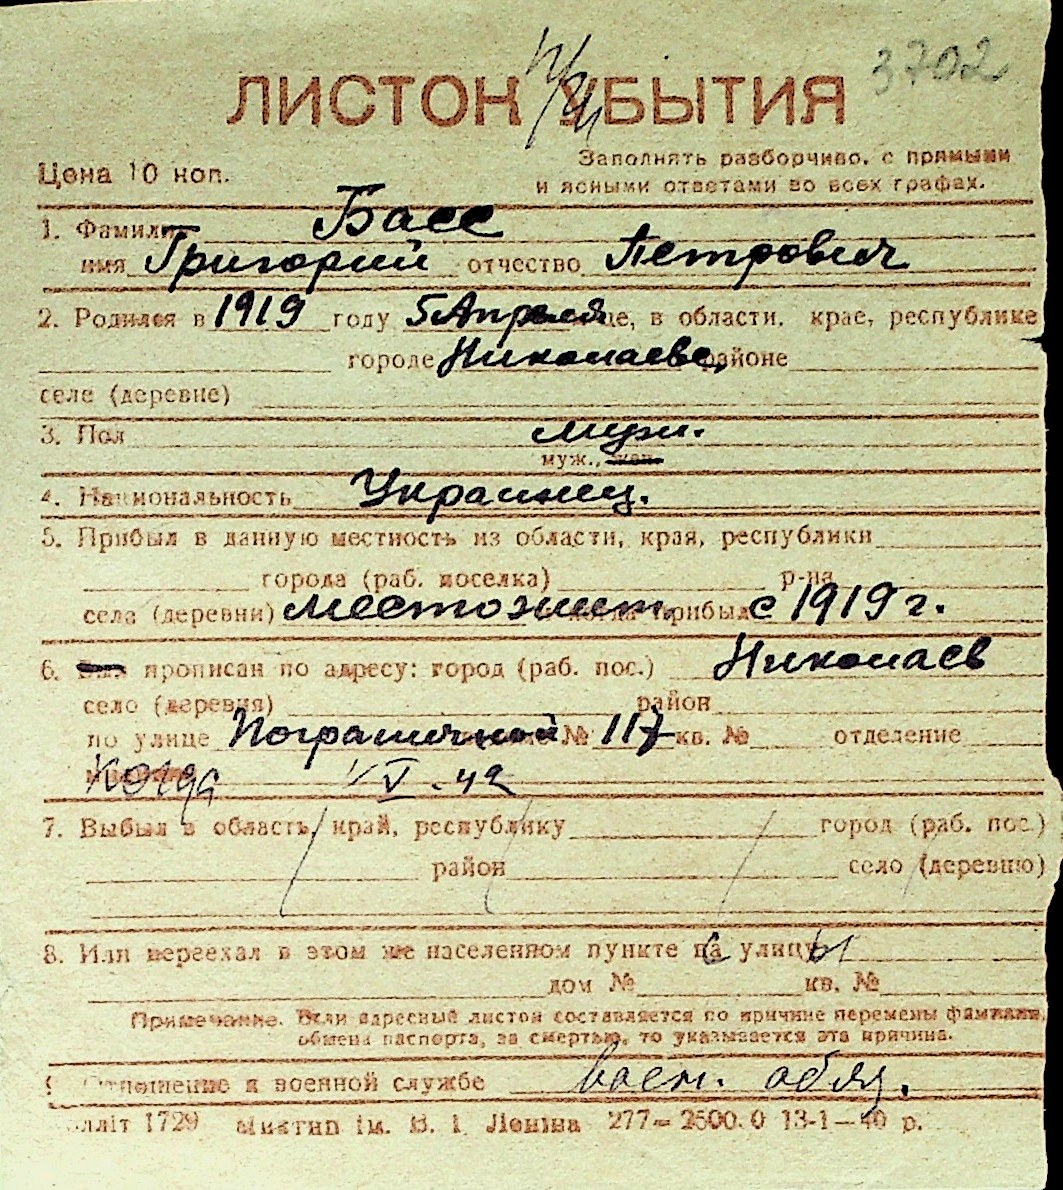 3702
ЛИСТОК УБЫТИЯ
Цена 10 коп.
Заполнять разборчиво, с прямыми
и ясными ответами во всех графах.
1. Фамилия Басс
имя Григорий отчество Петрович
2. Родился в 1919 году 5 Апреля це, в области, крае, республике
городе Николаеве, районе
селе (деревне)
3. Пол муж.
муж., жен.
4. Национальность Украинец.
5. Прибыл в данную местность из области, края, республики
города (раб. поселка) р-на
села (деревни) местожит. когда прибыл с 1919 г.
6. Был прописан по адресу: город (раб. пос.) Николаев
село (деревня) район
по улице Пограничной № 117 кв. № отделение
когда V. 42
7. Выбыл в область, край, республику город (раб. пос.)
район село (деревню)
8. Или переехал в этом же населенном пункте на с улицу ы
дом № кв. №
Примечание. Если адресный листок составляется по причине перемены фамилии,
обмена паспорта, за смертью, то указывается эта причина.
9. Отношение к военной службе воен. обяз.
лліт 1729 Миктип ім. В. І. Леніна 277— 2500.0 13-1—40 р.